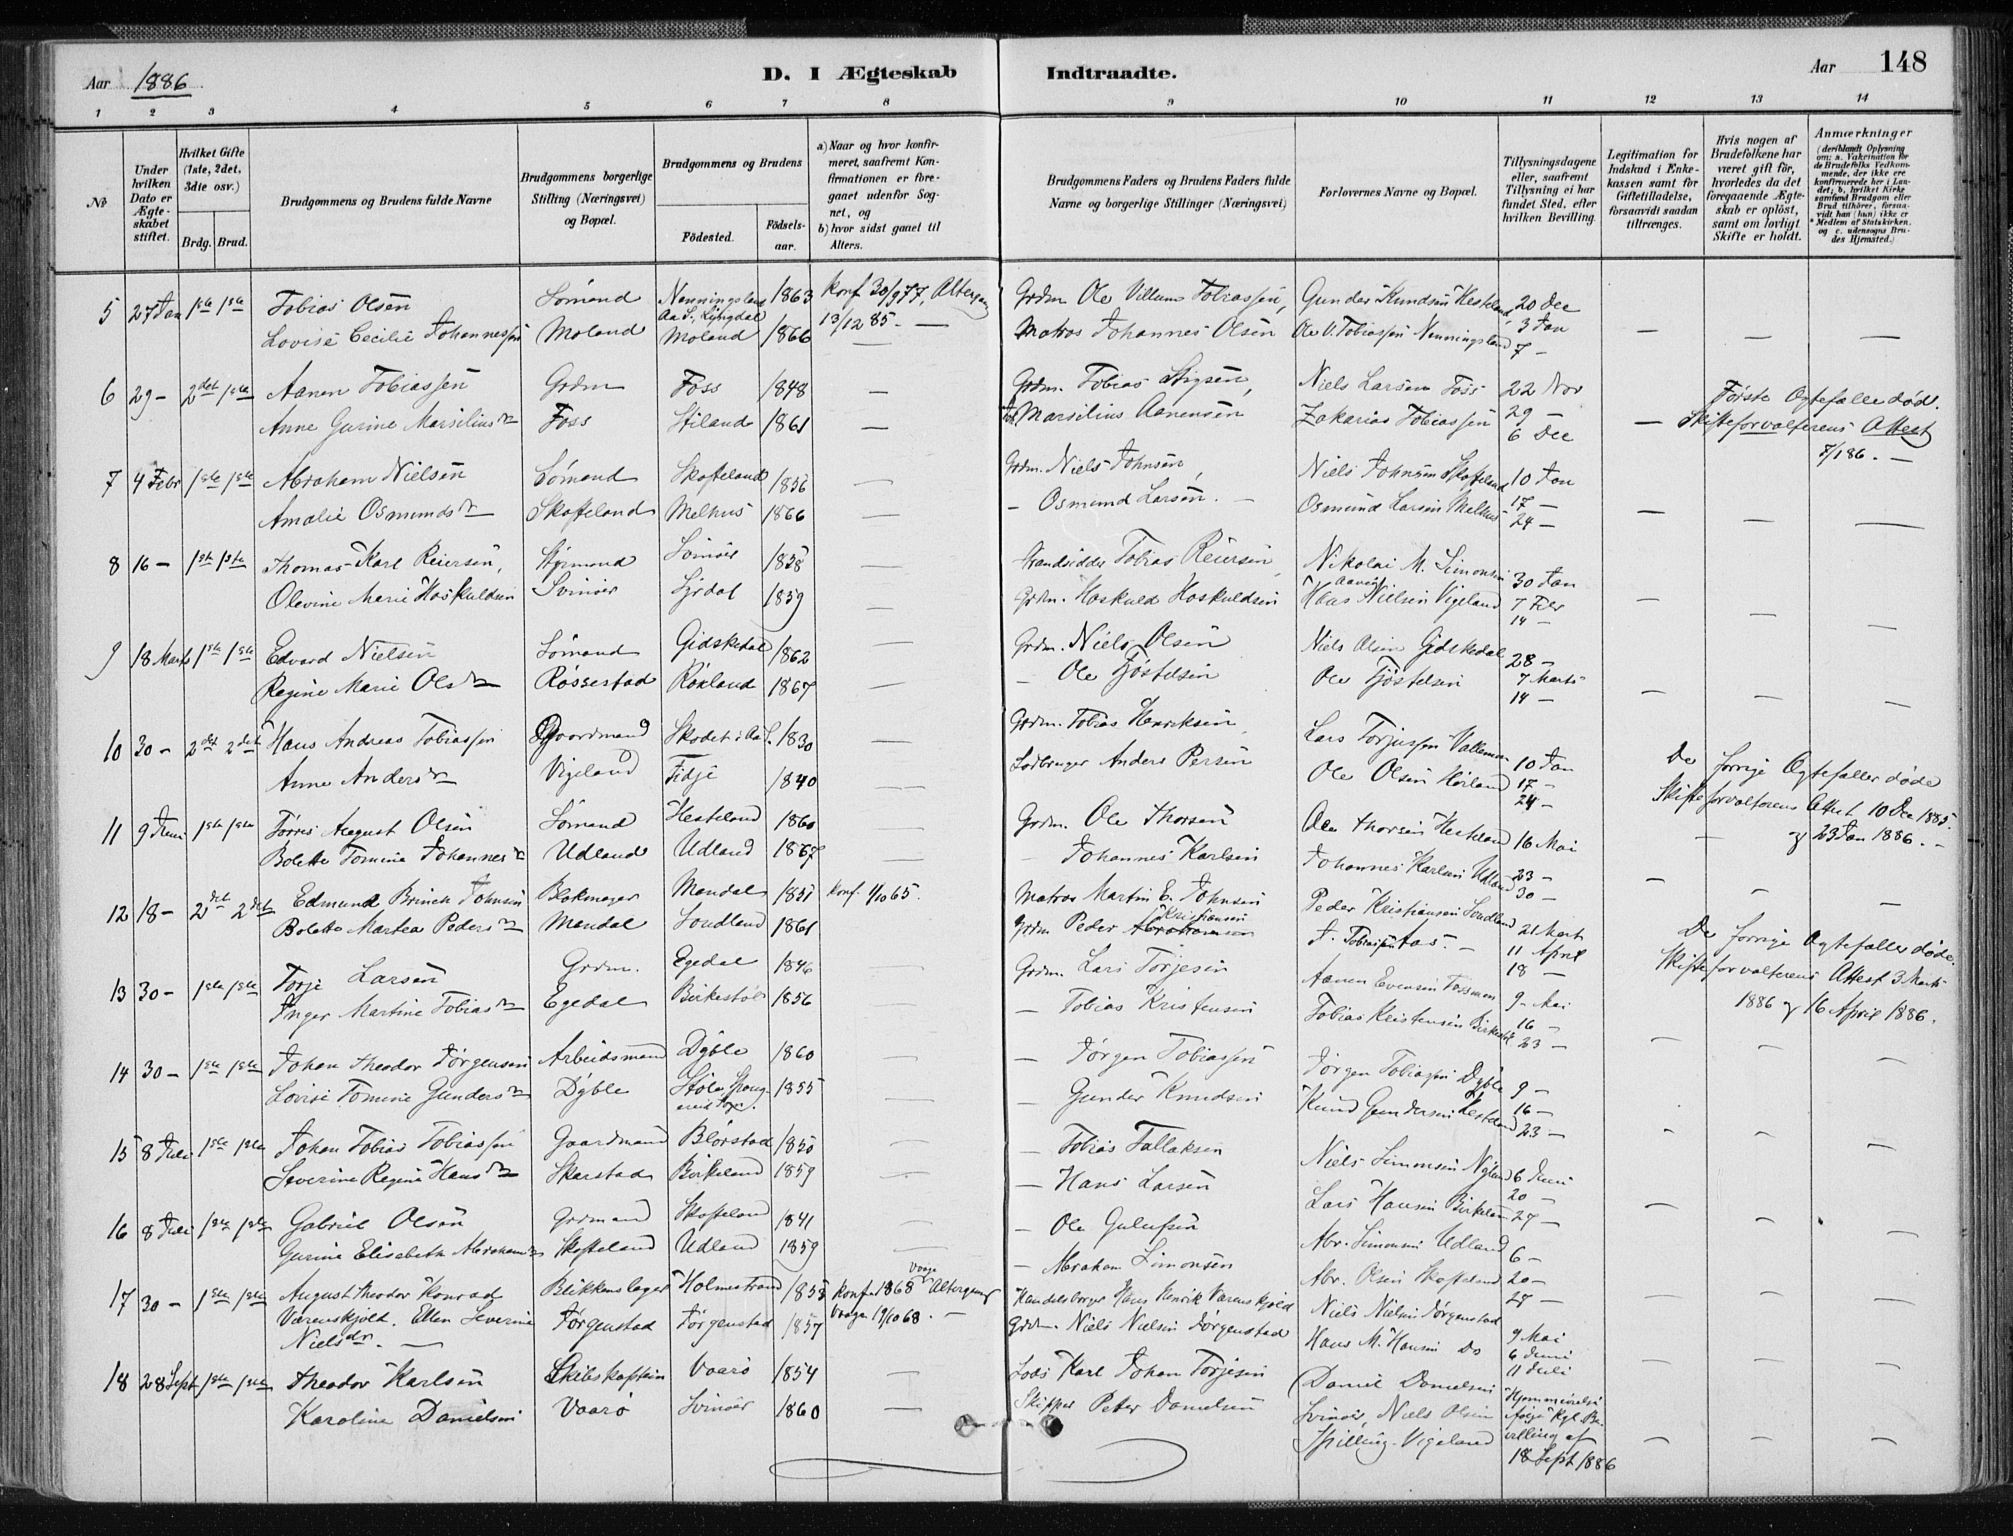 Aar 1886.
D. I Ægteskab Indtraadte.
Aar 148
1 2 3 4 5 6 7 8 9 10 11 12 13 14
№
Under hvilken Dato er Ægteskabet stiftet.
Hvilket Gifte (1ste, 2det, 3die osv.)
Brdg. Brud.
Brudgommens og Brudens fulde Navne
Brudgommens borgerlige Stilling (Næringsvei) og Bopæl.
Brudgommens og Brudens
Fødested. Fødsels-aar.
a) Naar og hvor konfirmeret, saafremt Konfirmationen er foregaaet udenfor Sognet, og
b) hvor sidst gaaet til Alters.
Brudgommens Faders og Brudens Faders fulde Navne og borgerlige Stillinger (Næringsvei)
Forlovernes Navne og Bopæl.
Tillysningsdagene eller, saafremt Tillysning ei har fundet Sted, efter hvilken Bevilling.
Legitimation for Indskud i Enkekassen samt for Giftetilladelse, forsaavidt saadan tiltrænges.
Hvis nogen af Brudefolkene har været gift før, hvorledes da det foregaaende Ægteskab er opløst, samt om lovligt Skifte er holdt.
Anmærkninger
5 27 Jan 1ste 1ste Tobias Olsen Sømand 1863 Konf 30/9 77, Grdm Ole Villum Tobiassen, Gunder Knudsen Hesteland, 20 Dec
Lovise Cecilie Johannessen Moland Moland 1866 13/12 85. — Matros Johannes Olsen Ole V. Tobiassen Nenningsland 3 Jan
7 —
6 29 — 2det 1ste Aanen Tobiassen Grdm Foss 1848 — Grdm. Tobias Stigsen, Niels Larsen Foss 22 Nov Første Ægtefælle død.
Anne Gurine Marsilius Foss Stiland 1861 — Marsilius Aanensen Zakarias Tobiassen 29 — Skifteforvalterens Attest
6 Dec 7/1 86. —
7 4 Febr 1ste 1ste Abraham Nielsen Sømand Skofteland 1856 — Grdm. Niels Johnsen, Niels Johnsen Skofteland 10 Jan
Amalie Osmunds Skofteland Melhus 1866 — — Osmund Larsen. — Osmund Larsen Melhus 17 —
24 —
8 16 — 1ste 1ste Thomas Karl Reiersen, Styrmand Svinør 1858 — Strandsidder Tobias Reiersen, Nikolai M. Simonsen 30 Jan
Olevine Marie Hoskuldsen Svinør Syrdal 1859 — Grdm. Hoskuld Hoskuldsen Haas Nielsen Vigeland 7 Febr
14 —
9 18 Marts 1ste 1ste Edvard Nielsen Sømand Gidskedal 1862 — Grdm. Niels Olsen Niels Olsen Gidskedal 28 —
Regine Marie Ols Røssestad Røxland 1867 — — Ole Tjøstelsen Ole Tjøstelsen 7 Marts
14 —
10 30 — 2det 2det Hans Andreas Tobiassen Gaardmand Skodet i Aa S. 1830 — Grdm. Tobias Henriksen Lars Torjussen Valleman 10 Jan De forrige Ægtefæller døde
Anne Anders Vigeland Fidje 1840 — Anders Persen Ole Olsen Hørland 17 — Skifteforvalterens Attest 10 Dec 1885.
24 — og 23 Jan 1886. —
11 9 Juni 1ste 1ste Tørres August Olsen Sømand Hesteland 1860 Grdm. Ole Thorsen Ole Thorsen Hesteland 16 Mai
Bolette Tomine Johannes Udland Udland 1867 — Johannes Karlsen Johannes Karlsen Udland 23 —
30 —
12 18 — 2det 2det Edmund Brinch Johnsen Blokmager Mandal 1851 Konf. 1/10 65. Matros Martin E. Johnsen Peder Kristiansen Sundland 21 Marts De forrige Ægtefæller døde.
Bolette Martea Peders Mandal Sundland 1861 Grdm Peder Kristiansen J. Tobiassen Aas. — 11 April Skifteforvalterens Attest 3 Marts
18 — 1886 og 16 April 1886.
13 30 — 1ste 1ste Torje Larsen Grdm. Egedal 1846 — Grdm. Lars Torjesen Aanen Evensen Fossman 9 Mai
Inger Martine Tobias Egedal Birkestøl 1856 — — Tobias Kristensen Tobias Kristensen Birkestøl 16 —
23 —
14 30 — 1ste 1ste Johan Theodor Jørgensen Arbeidsmand Dyble 1860 — — Jørgen Tobiassen Jørgen Tobiassen Dyble 9 —
Lovise Tomine Gunders Dyble Støle, 1855 — Gunder Knudsen Knud Gundersen Hesteland 16 —
23 —
15 8 Juli 1ste 1ste Johan Tobias Tobiassen Gaardmand Blørstad 1850 — Tobias Tallaksen Niels Simonsen Nyland 6 Juni
Severine Regine Hans Skarstad Birkeland 1859 — — Hans Larsen Lars Hansen Birkeland 20 —
27 —
16 8 Juli 1ste 1ste Gabriel Olsen Grdmand Skofteland 1841 — — Ole Gulufsen Abr. Simonsen Udland 6 —
Gurine Elisabeth Abraham Skofteland Udland 1859 — — Abraham Simonsen Abr. Olsen Skofteland 20 —
27 —
17 30 — 1ste 1ste August Theodor Konrad Blikkenslager Holmestrand 1853 Konf 1868 Altergang Handelsborger Hans Henrik Værenskjold Niels Nielsen Jørgenstad 9 Mai
Værenskjold. Ellen Severine Jørgenstad Jørgenstad 1857 Grdm. Niels Nielsen Jørgenstad Hans M. Hansen Do 6 Juni
Nielsdr. — 11 Juli
18 28 Sept 1ste 1ste Theodor Karlsen Skibskaptein Vaarø 1854 — Lods Karl Johan Torjesen Daniel Danielsen Hjemmevielse
Karoline Danielsen Vaarø Svinør 1860 — Skipper Peter Danielsen Svinør, Niels Olsen Kgl. Bevilling af
Spilling-Vigeland 18 Sept 1886